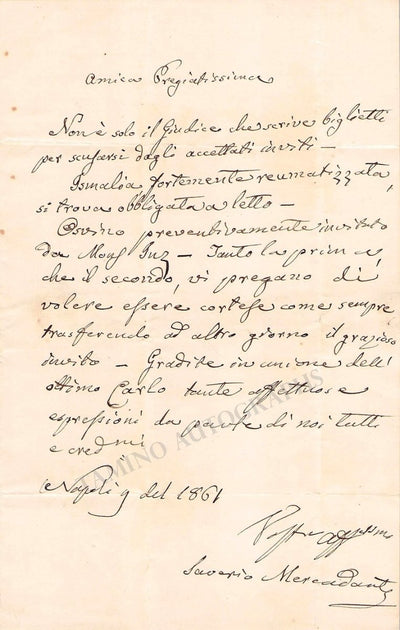 Amica Pregiatissima
Non è solo il Giudice che scrive biglietti
per scusarsi dagli accettati inviti –
Ismalia fortemente reumatizzata,
si trova obbligata a letto –
Osvino preventivamente invitato
da Mons – Tanto la prima,
che il secondo, vi pregano di
volere essere cortese come sempre
trasferendo ad altro giorno il grazioso
invito – Gradite in unione dell'
ottimo Carlo tante affettuose
espressioni da parte di noi tutti
e credmi
Napoli 9 del 1861
Saverio Mercadante
TAMINO AUTOGRAPHS